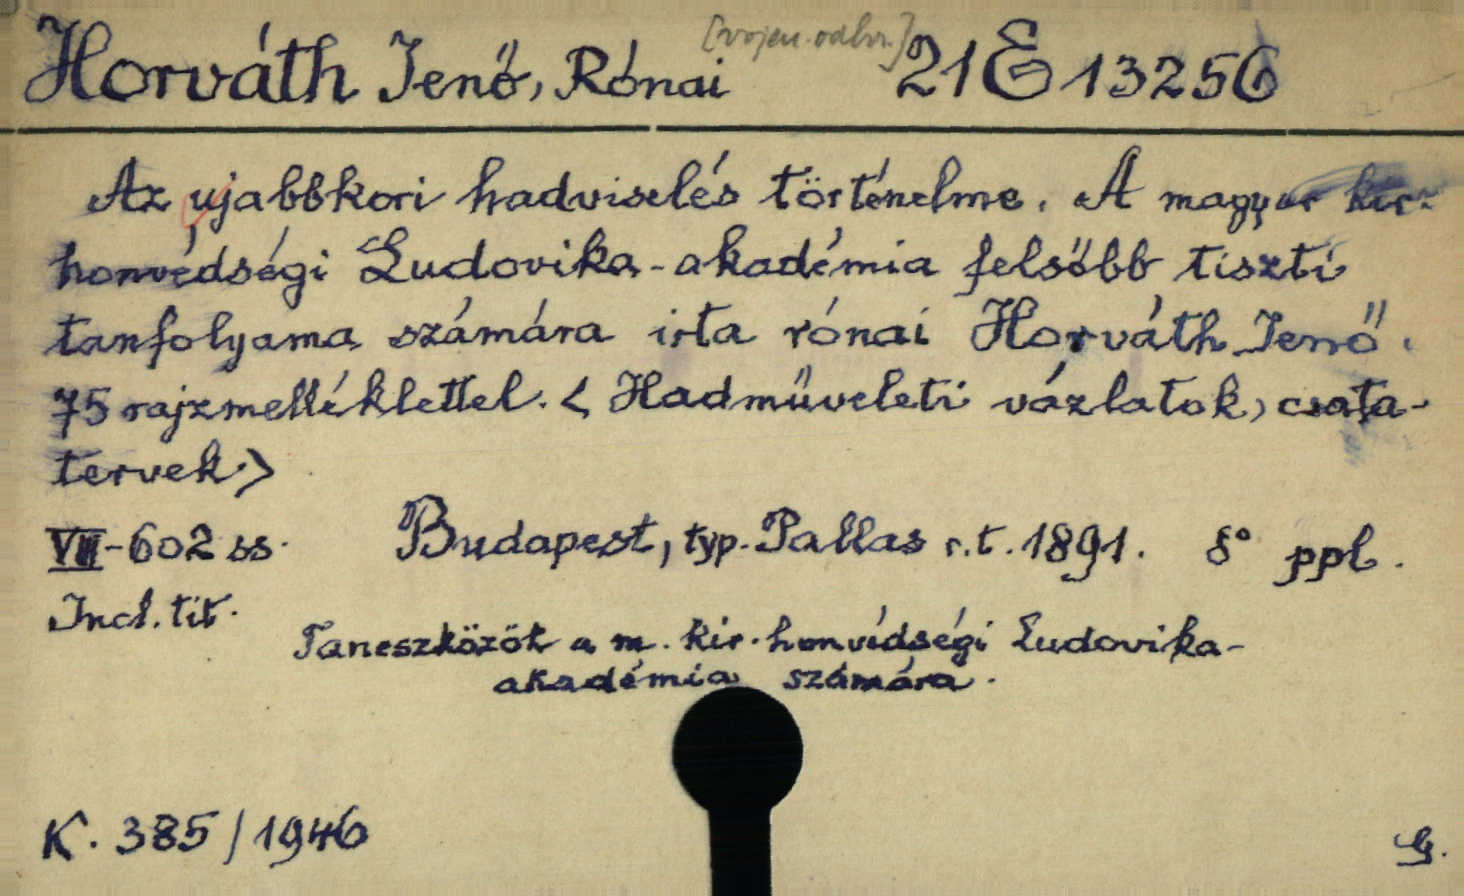 Horváth Jenő, Rónai [vojen. odbor.] 21 E 13256
Az ujabbkori hadviselés történelme. A magyar kir.
honvédségi Ludovika-akadémia felsőbb tiszti
tanfolyama számára irta rónai Horváth Jenő.
75 rajzmelléklettel. < Hadműveleti vázlatok, csata-
tervek >
VII-602 ss. Budapest, typ. Pallas r.t. 1891. 8° ppl.
Incl. tit.
Taneszközök a m. kir. honvédségi Ludovika-
akadémia számára.
K. 385/1946